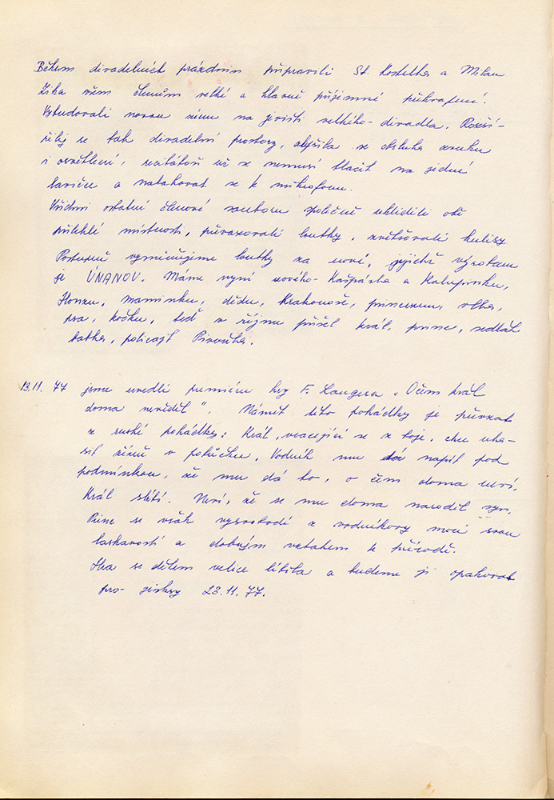 Během divadelních prázdnin připravili St. Kostelka a Milan
všem členům velké a hlavně příjemné překvapení.
Vybudovali novou rampu na jevišti velkého divadla. Rozší-
řily se tak divadelní prostory, obsluha zvuku
i osvětlení, už se nemusí tlačit na jedné
lavičce a natahovat se k mikrofonu.
Všichni ostatní členové souboru společně uklidili obě
přilehlé místnosti, převazovali loutky, zvětšovali kulisy.
Postupně vyměňujeme loutky za nové, jejichž výrobcem
je ÚNANOV. Máme nyní nového Kašpárka a Kalupinku,
Honzu, maminku, dědu, Krakonoše, princeznu, vlka,
psa, kočku, teď v říjnu přišel král, princ, sedlák
13.11.77 jsme uvedli premiéru hry F. Langera „O čem král
doma nevěděl". Námět této pohádky je převzat
z ruské pohádky: Král, vracející se z boje, chce uha-
sit žízeň v potůčku. Vodník mu dá napít pod
podmínkou, že mu dá to, o čem doma neví.
Král slíbí. Neví, že se mu doma narodil syn.
Princ se však vysvobodí z vodníkovy moci svou
laskavostí a dobrým vztahem k přírodě.
Hra se dětem velice líbila a budeme ji opakovat
pro jiskry 23.11.77.